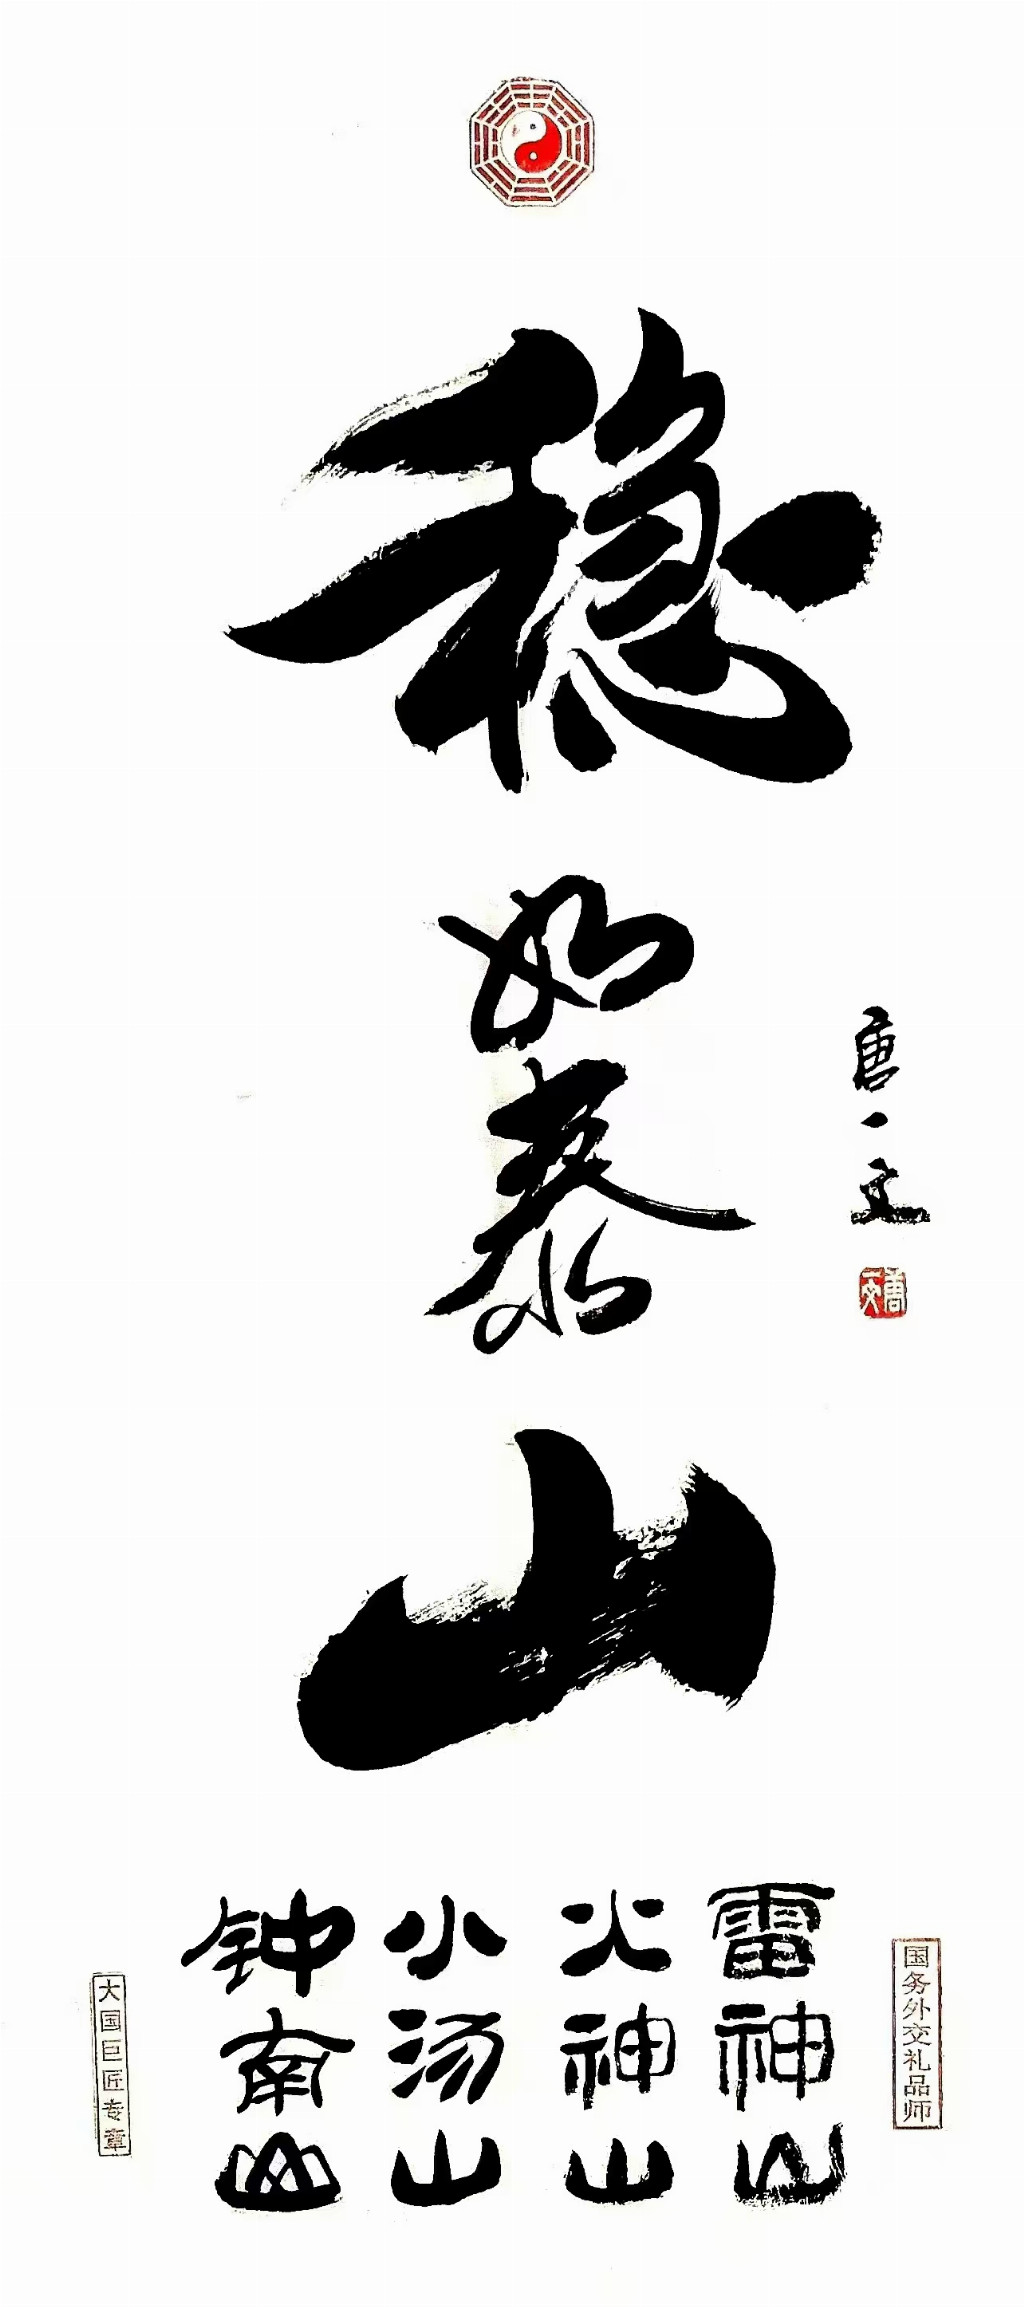 稳如泰山
唐一文
唐一文
雷神山
火神山
小汤山
钟南山
国务外交礼品师
大国巨匠专章